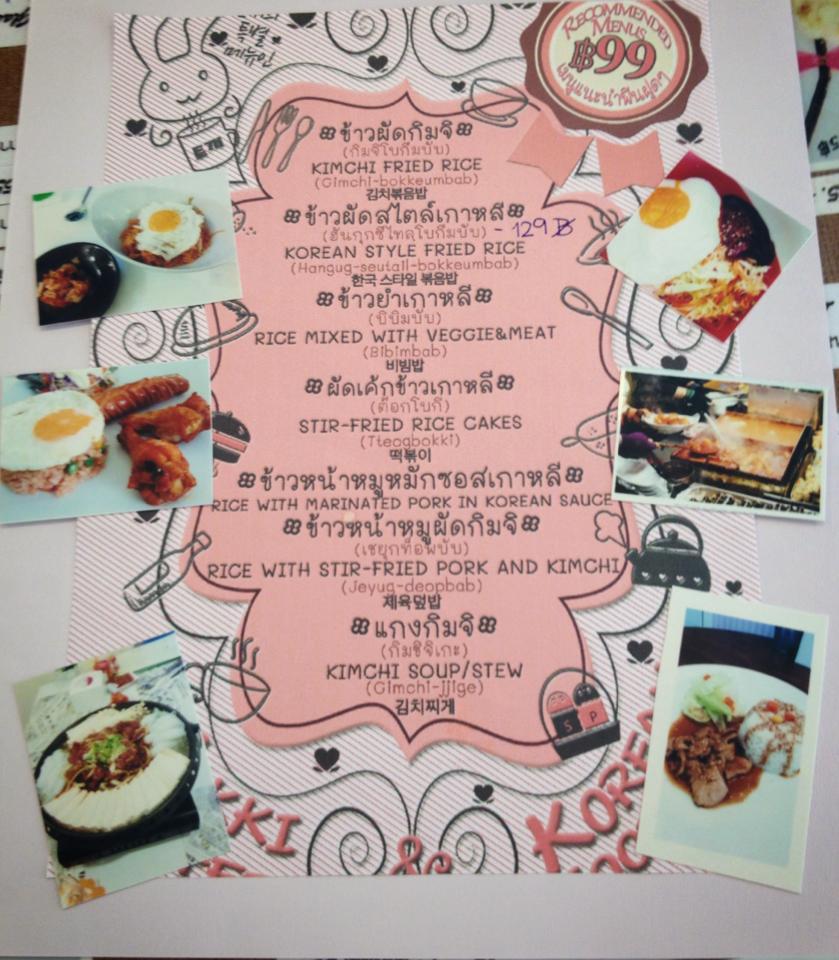 특별
메뉴인
RECOMMENDED
MENUS
฿99
เมนูแนะนำฟินฝุดๆ
ข้าวผัดกิมจิ
(กิมจิโบกึมบับ)
KIMCHI FRIED RICE
(Gimchi-bokkeumbab)
김치볶음밥
ข้าวผัดสไตล์เกาหลี
(ฮันกุกซึไทลโบกึมบับ) - 129 ฿
KOREAN STYLE FRIED RICE
(Hangug-seutail-bokkeumbab)
한국 스타일 볶음밥
ข้าวยำเกาหลี
(บิบิมบับ)
RICE MIXED WITH VEGGIE&MEAT
(Bibimbab)
비빔밥
ผัดเค้กข้าวเกาหลี
(ต๊อกโบกี)
STIR-FRIED RICE CAKES
(Tteogbokki)
떡볶이
ข้าวหน้าหมูหมักซอสเกาหลี
RICE WITH MARINATED PORK IN KOREAN SAUCE
ข้าวหน้าหมูผัดกิมจิ
(เชยุกท็อพบับ)
RICE WITH STIR-FRIED PORK AND KIMCHI
(Jeyug-deopbab)
제육덮밥
แกงกิมจิ
(กิมชิจิเกะ)
KIMCHI SOUP/STEW
(Gimchi-jjige)
김치찌게
S P
&